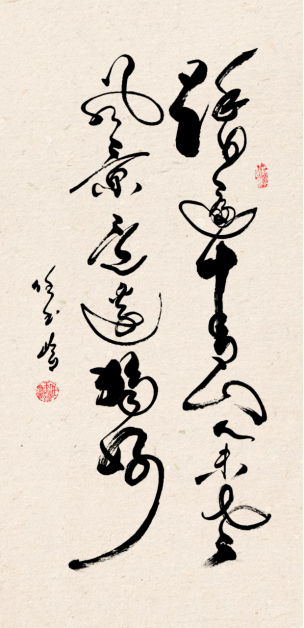 踏遍青山人未老
风景这边独好